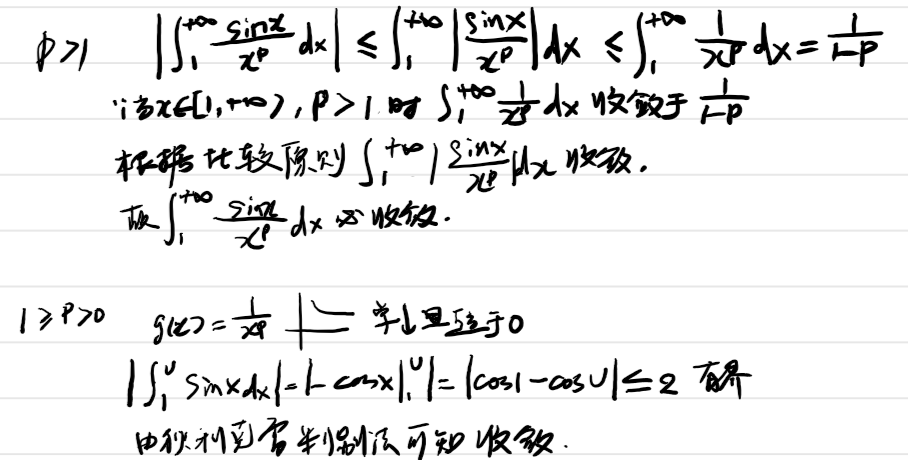 p>1 |∫₁^{+∞} sinx/x^p dx| ≤ ∫₁^{+∞} |sinx/x^p| dx ≤ ∫₁^{+∞} 1/x^p dx = 1/(1-p)
∵当x∈[1,+∞), p>1 时 ∫₁^{+∞} 1/x^p dx 收敛于 1/(1-p)
根据比较原则 ∫₁^{+∞} |sinx/x^p| dx 收敛.
故 ∫₁^{+∞} sinx/x^p dx 必收敛.
1≥p>0 g(x)=1/x^p 单↓且趋于0
|∫₁^U sinx dx|=|-cosx|₁^U|=|cos1-cosU|≤2 有界
由狄利克雷判别法可知收敛.